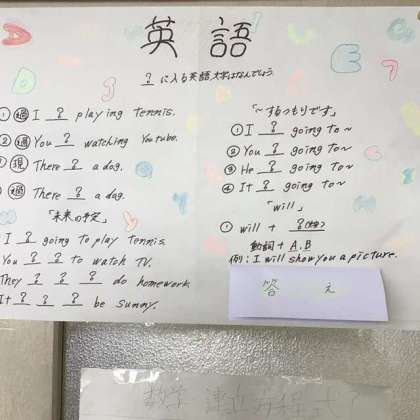 英語
?に入る英語、文字はなんでしょう。
① 過 I ? playing tennis.
② 過 You ? watching Youtube.
現 There ? a dog.
過 There ? a dog.
「未来の予定」
I ? going to play tennis.
You ? ? to watch TV.
They ? ? ? do homework.
It ? ? ? be sunny.
「~するつもりです」
① I ? going to~
② You ? going to~
③ He ? going to~
④ It ? going to~
「will」
① will + ?
動詞 + A.B
例: I will show you a picture.
答え
数学